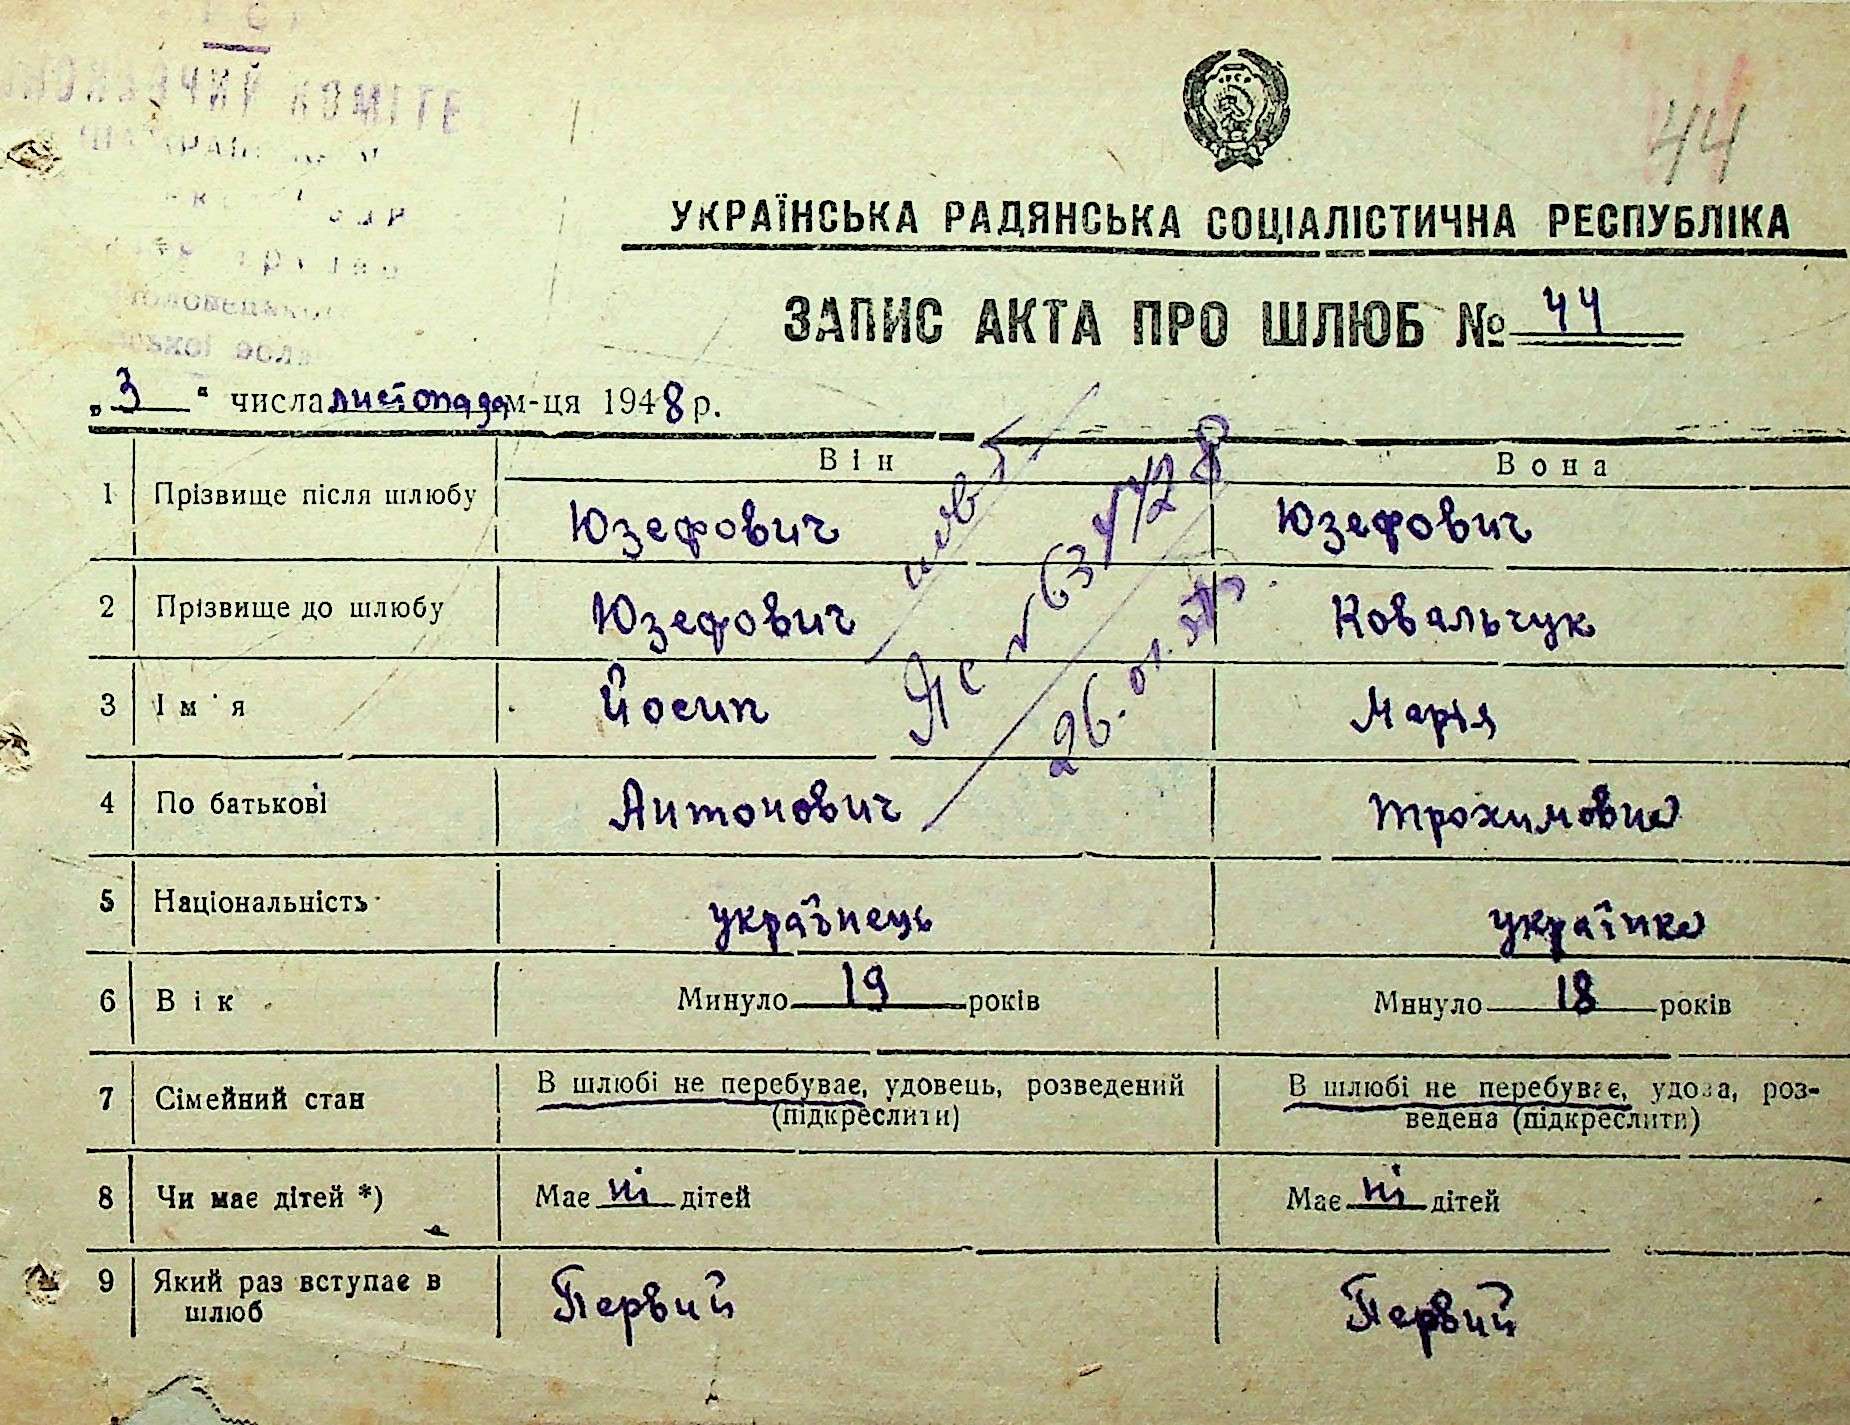 КОМІТЕ
44
УКРАЇНСЬКА РАДЯНСЬКА СОЦІАЛІСТИЧНА РЕСПУБЛІКА
ЗАПИС АКТА ПРО ШЛЮБ № 44
„ 3 “ числа листопада м-ця 1948 р.
Він Вона
1 Прізвище після шлюбу Юзефович Юзефович
2 Прізвище до шлюбу Юзефович Ковальчук
3 Ім'я Йосип Марія
4 По батькові Антонович Трохимовна
5 Національність українець українка
6 Вік Минуло 19 років Минуло 18 років
7 Сімейний стан В шлюбі не перебуває, удовець, розведений (підкреслити) В шлюбі не перебуває, удова, розведена (підкреслити)
8 Чи має дітей *) Має ні дітей Має ні дітей
9 Який раз вступає в шлюб Первий Первий
26.01.